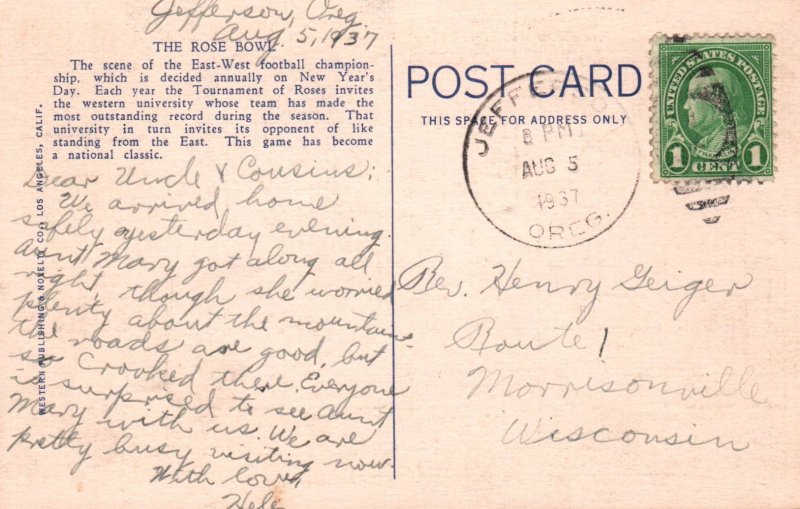 Jefferson, Oreg.
Aug. 5, 1937
THE ROSE BOWL
The scene of the East-West football champion-
ship, which is decided annually on New Year's
Day. Each year the Tournament of Roses invites
the western university whose team has made the
most outstanding record during the season. That
university in turn invites its opponent of like
standing from the East. This game has become
a national classic.
WESTERN PUBLISHING & NOVELTY CO., LOS ANGELES, CALIF.
Dear Uncle & Cousins;
We arrived home
safely yesterday evening.
Aunt Mary got along all
right though she worried
plenty about the mountains.
The roads are good, but
so crooked there. Everyone
is surprised to see Aunt
Mary with us. We are
pretty busy visiting now.
With love,
POST CARD
THIS SPACE FOR ADDRESS ONLY
6 PM
AUG 5
1937
OREG.
UNITED STATES POSTAGE
1 CENT 1
Rev. Henry Geiger
Route 1
Morrisonville
Wisconsin